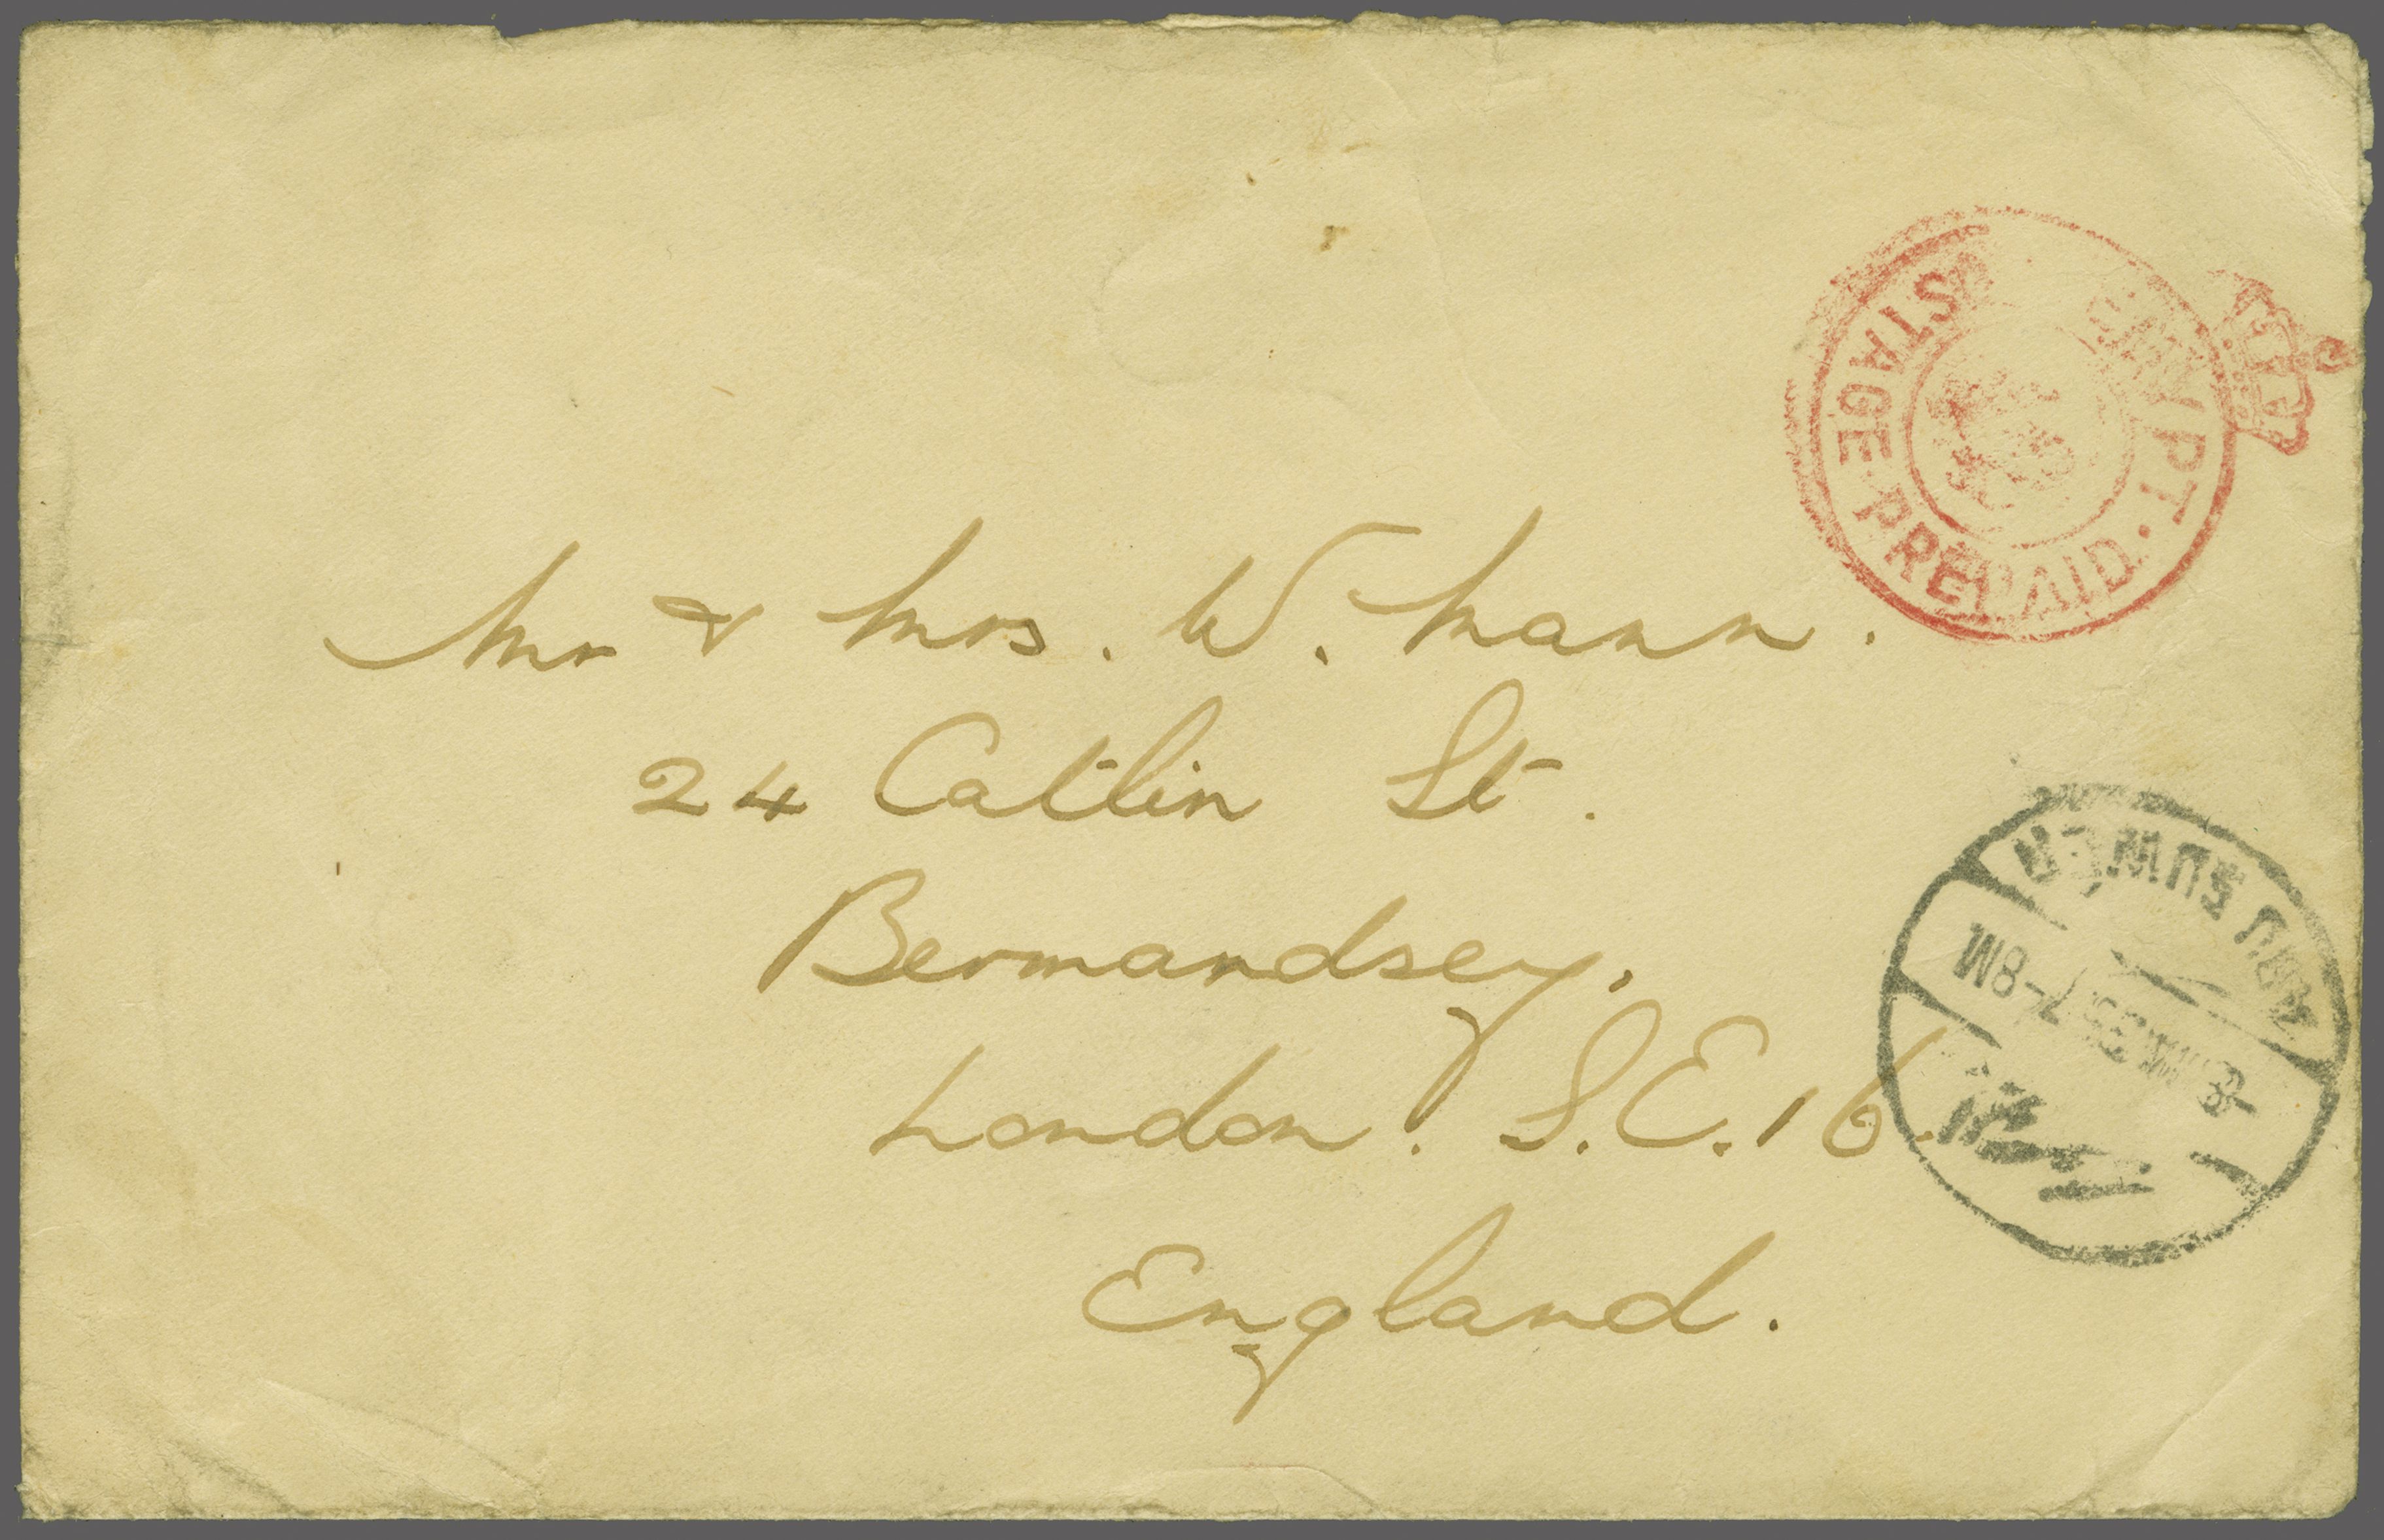 POSTAGE PREPAID. EGYPT.
Mr & Mrs. W. Mann.
24 Catlin St.
Bermandsey.
London. S.E.16.
England.
ABU SUWEIR
7-8M